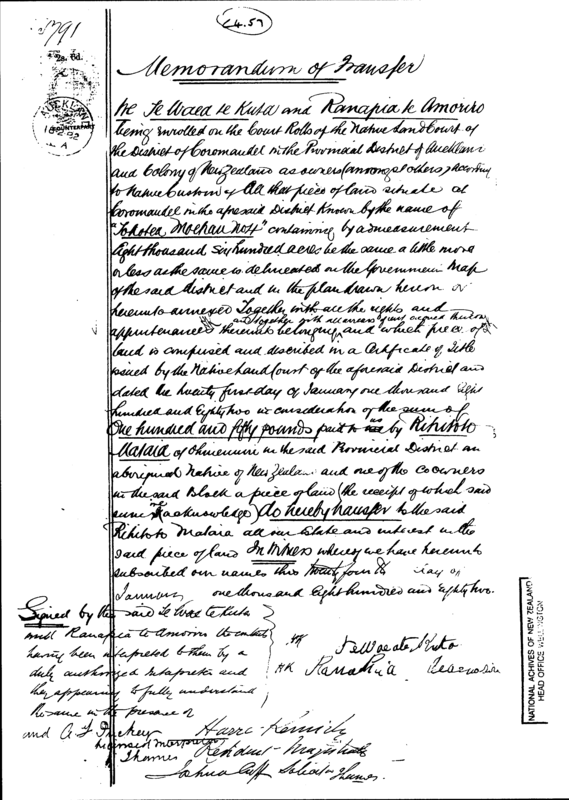 C4.57
91
2s. 6d.
AUCKLAND
COUNTERPART
A
Memorandum of Transfer
We Te Waea te Kuta and Ranapia te Amoriro
being enrolled on the Court Rolls of the Native Land Court of
the District of Coromandel in the Provincial District of Auckland
and Colony of New Zealand as owners (amongst others) according
to Native Custom of All that piece of land situate at
Coromandel in the aforesaid District Known by the name of
Moehau No4" containing by admeasurement
Eight thousand Six hundred acres be the same a little more
or less as the same is delineated on the Government Map
of the said district and in the plan drawn hereon or
hereunto annexed Together with all the rights and
and together with all
appurtenances thereunto belonging and which piece of
land is comprised and described in a Certificate of Title
issued by the Native Land Court of the aforesaid District and
dated the twenty first day of January one thousand Eight
hundred and Eighty two in consideration of the sum of
One hundred and fifty pounds paid to by Rihitoto
Mataia of Ohinemuri in the said Provincial District an
aboriginal Native of New Zealand and one of the co owners
in the said Block a piece of land (the receipt of which said
sum we acknowledge) do hereby transfer to the said
Rihitoto Mataia all our Estate and interest in the
said piece of land In Witness whereof we have hereunto
subscribed our names this twenty fourth day of
January one thousand Eight hundred and Eighty two.
Signed by the said Te Waea te Kuta
and Ranapia te Amoriro the contents
having been interpreted to them by a
duly authorized Interpreter and
they appearing to fully understand
the same in the presence of
and A. F. Puckey
Thames
Te Waea te Kuta
Ranapia
Harry Kenrick
Resident Magistrate
Joshua Cuff Solicitor Thames.
NATIONAL ARCHIVES OF NEW ZEALAND
HEAD OFFICE WELLINGTON